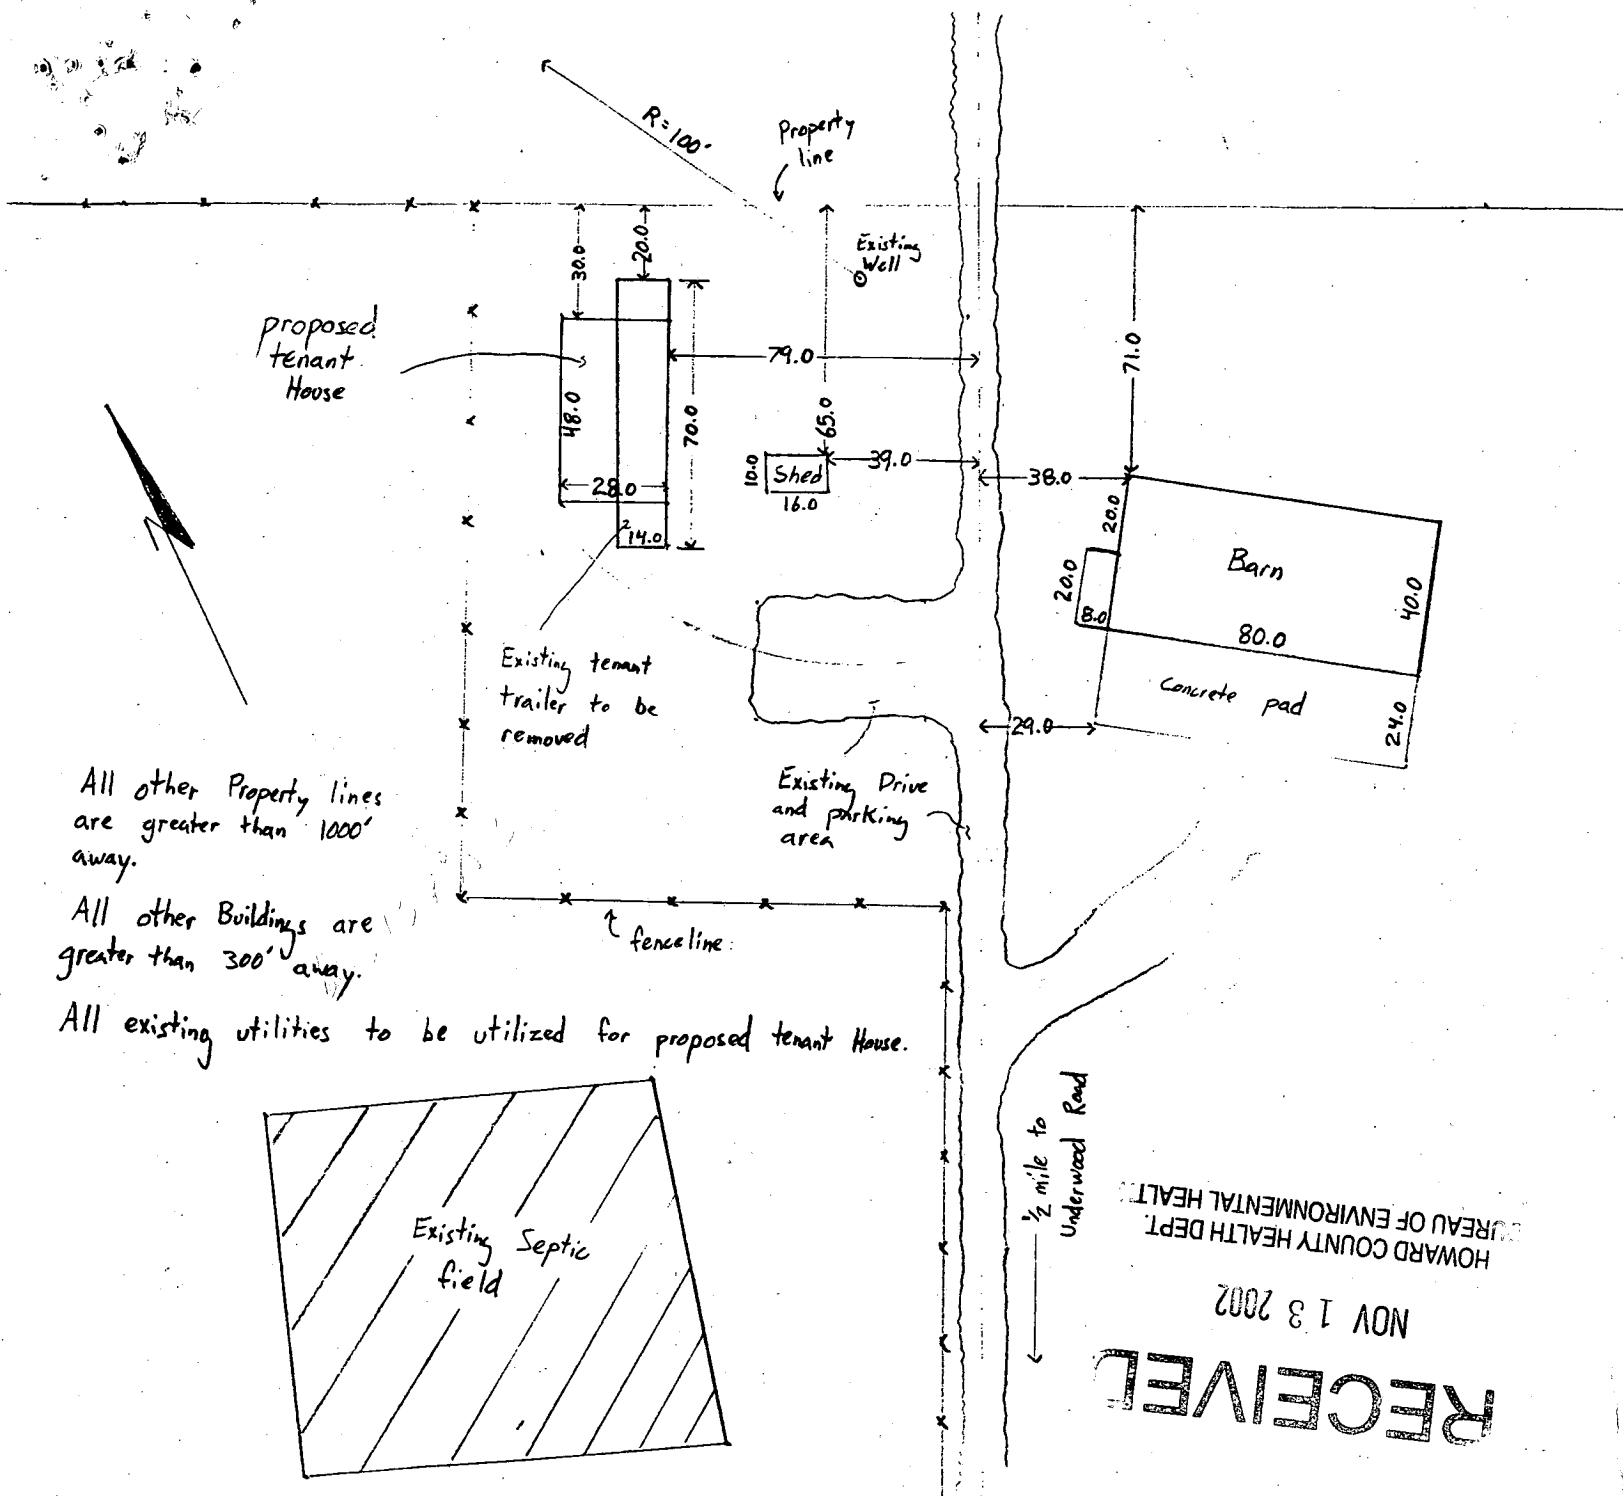 R=100'
Property
line
Existing
Well
30.0
20.0
proposed
tenant
House
79.0
71.0
48.0
70.0
65.0
10.0
Shed
16.0
39.0
38.0
28.0
14.0
20.0
20.0
8.0
Barn
40.0
80.0
Concrete pad
24.0
29.0
Existing tenant
trailer to be
removed
Existing Drive
and parking
area
All other Property lines
are greater than 1000'
away.
All other Buildings are
greater than 300' away.
fenceline
All existing utilities to be utilized for proposed tenant House.
Existing Septic
field
1/2 mile to
Underwood Road
RECEIVED
NOV 13 2002
HOWARD COUNTY HEALTH DEPT.
BUREAU OF ENVIRONMENTAL HEALTH